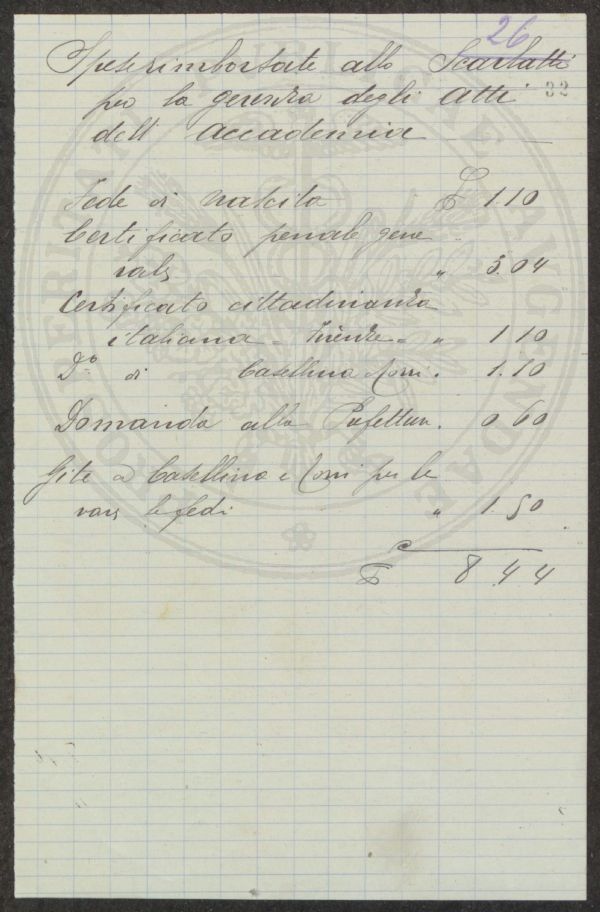 26
Spese rimborsate allo Scarlatti
per la gerenza degli Atti 32
dell' Accademia
Fede di nascita £ 1.10
Certificato penale gene
rale " 3.04
Certificato cittadinanza
italiana - Firenze - " 1.10
Dº di Casellina e Torri . 1.10
Domanda alla Prefettura . 0.60
Gite a Casellina e Torri per le
vare le fedi " 1.50
£ 8.44